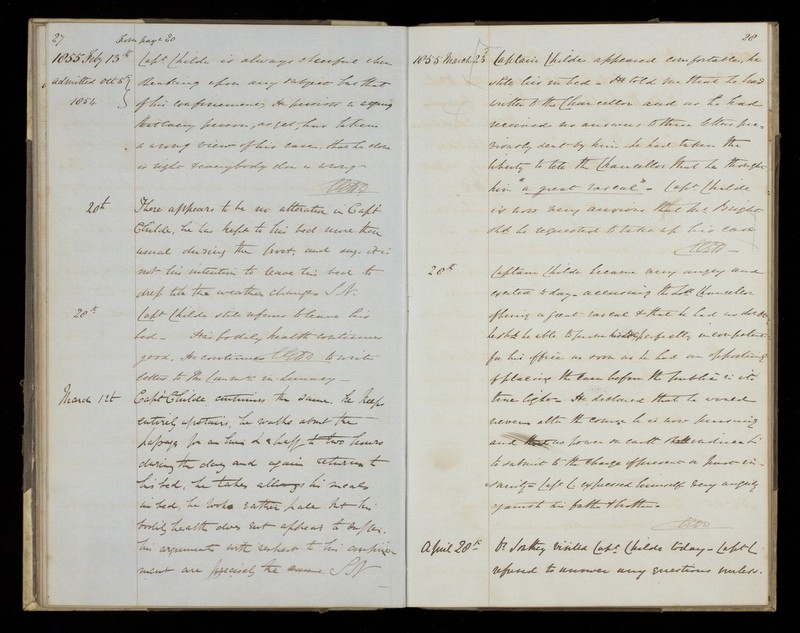 27 from page 20
1855 Feby 13th Capt Childe is always cheerful when
admitted Oct 5th speaking upon any subject but that
1854 of his confinement, he persists in saying
that every person, as yet, has taken
a wrong view of his case, that he alone
is right & everybody else is wrong -
20th There appears to be no alteration in Capt
Childe, he has kept to his bed more than
usual during the frost, and says it is
not his intention to leave his bed to
dress till the weather changes S.N.
28th Capt Childe still refuses to leave his
bed - His bodily health continues
good. He continues to write
letters to the Commrs in Lunacy -
March 12th Capt Childe continues the same. he keeps
entirely upstairs, he walks about the
passage for an hour & a half to two hours
during the day and again returns to
his bed, he takes all his meals
in bed, he looks rather pale but his
bodily health does not appear to suffer.
his arguments with respect to his confine
ment are precisely the same S.N
28
1855 March 23d Captain Childe appeared comfortable, he
still lies in bed - He told me that he had
written to the Chancellor and as he had
received no answer to three letters pre-
viously sent by him he had taken the
liberty to tell the Chancellor that he thought
him "a great rascal" - Capt Childe
is now very anxious that Mr Bright
shd be requested to take up his case
28th Captain Childe became very angry and
excited today accusing the Ld Chancellor
of being a great rascal & that he had no doubt
he shd be able to prove him perfectly incompetent
for his office as soon as he had an opportunity
of placing the case before the public in its
true light - He declared that he would
never alter the course he is now pursuing
and no power on earth shall induce him
to submit to the charge of present or past in-
sanity - Capt C expressed himself very angrily
against his father & brother -
April 20th Dr Southey visited Capt Childe today - Capt C
refused to answer any questions unless